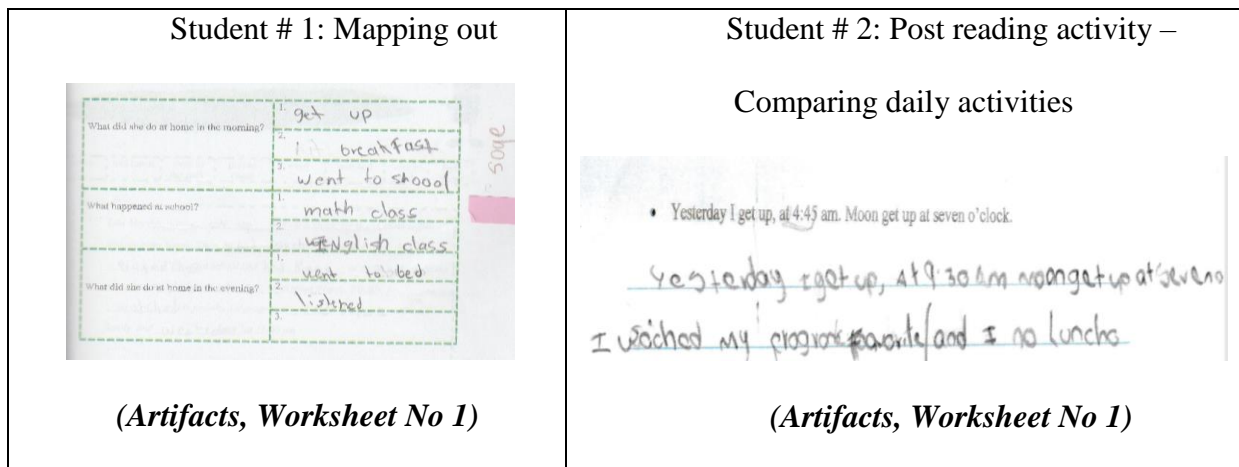 Student # 1: Mapping out
What did she do at home in the morning?
1. get up
2. breakfast
3. went to shoool
What happened at school?
1. math class
2. English class
What did she do at home in the evening?
1. went to bed
2. listened
3.
(Artifacts, Worksheet No 1)
Student # 2: Post reading activity –
Comparing daily activities
• Yesterday I get up, at 4:45 am. Moon get up at seven o'clock.
Yesterday I get up, At 9:30 am moon get up at seveno
I wached my program favorite/and I no luncho
(Artifacts, Worksheet No 1)